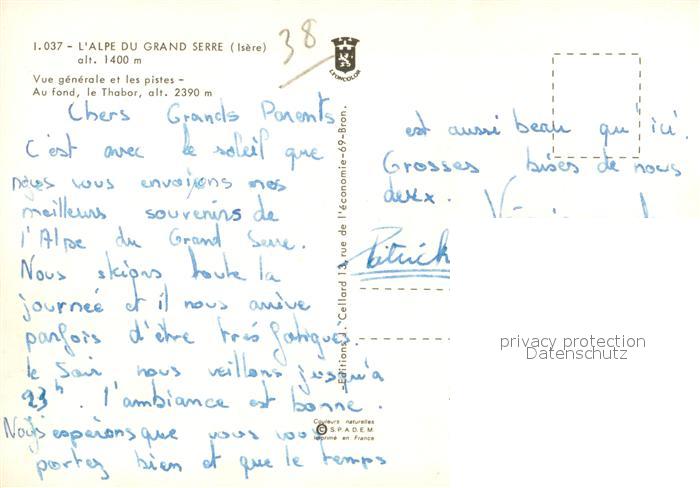 1.037 - L'ALPE DU GRAND SERRE (Isère)
alt. 1400 m
Vue générale et les pistes -
Au fond, le Thabor, alt. 2390 m
38
LYONCOLOR
Chers Grands Parents
C'est avec le soleil que
nous vous envoyons nos
meilleurs souvenirs de
l'Alpe du Grand Serre.
Nous skions toute la
journée et il nous arrive
parfois d'être très fatigués.
le soir nous veillons jusqu'à
23h. l'ambiance est bonne.
Nous espérons que vous vous
portez bien et que le temps
est aussi beau qu'ici.
Grosses bises de nous
deux.
Patrick
Editions J. Cellard 13, rue de l'économie-69-Bron.
Couleurs naturelles
© S.P.A.D.E.M.
Imprimé en France
privacy protection
Datenschutz